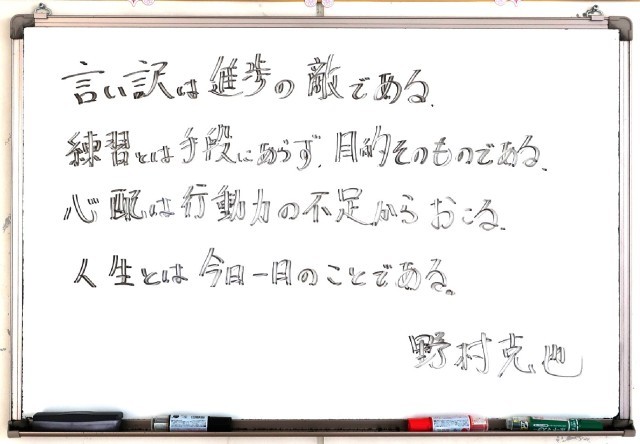 言い訳は進歩の敵である.
練習とは手段にあらず.目的そのものである.
心配は行動力の不足からおこる.
人生とは今日一日のことである。
野村克也